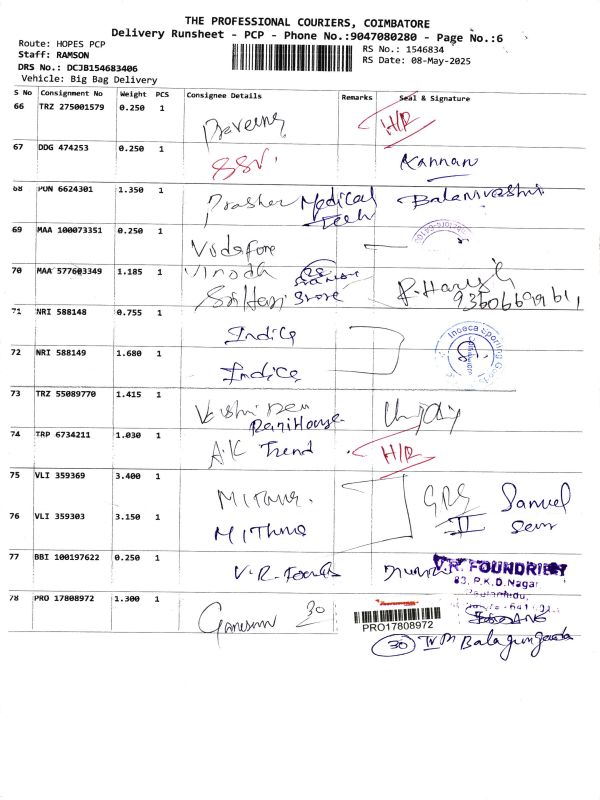 THE PROFESSIONAL COURIERS, COIMBATORE
Delivery Runsheet - PCP - Phone No.:9047080280 - Page No.:6
Route: HOPES PCP
RS No.: 1546834
Staff: RAMSON
RS Date: 08-May-2025
DRS No.: DCJB154683406
Vehicle: Big Bag Delivery
S No Consignment No Weight PCS Consignee Details Remarks Seal & Signature
66 TRZ 275001579 0.250 1 Praveena H/R
67 DDG 474253 0.250 1 SSV. Kannan
68 PON 6624301 1.350 1 Medical
Tech
69 MAA 100073351 0.250 1 Vodafone
70 MAA 577603349 1.185 1 Vinoda
Sri Hari Store 9360669961
71 NRI 588148 0.755 1 Indica
72 NRI 588149 1.680 1 Indica
73 TRZ 55089770 1.415 1
74 TRP 6734211 1.030 1 A.K Trend H/R
75 VLI 359369 3.400 1 Mithna. GRS Samuel
76 VLI 359303 3.150 1 MIThna
77 BBI 100197622 0.250 1 V.R. V.R. FOUNDRIE
83, P.K.D.Nagar
78 PRO 17808972 1.300 1 Ganesan 30
PRO17808972
30